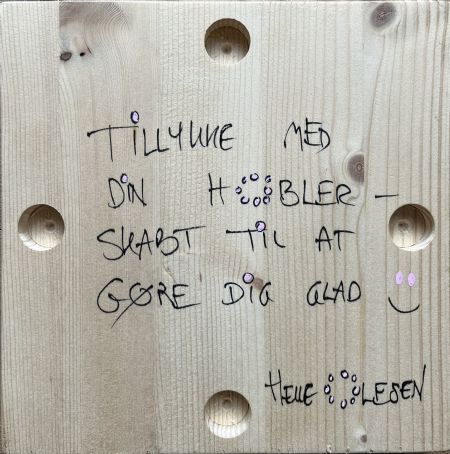 TILLYKKE MED
DIN HOBLER –
SKABT TIL AT
GØRE DIG GLAD
HELLE OLESEN